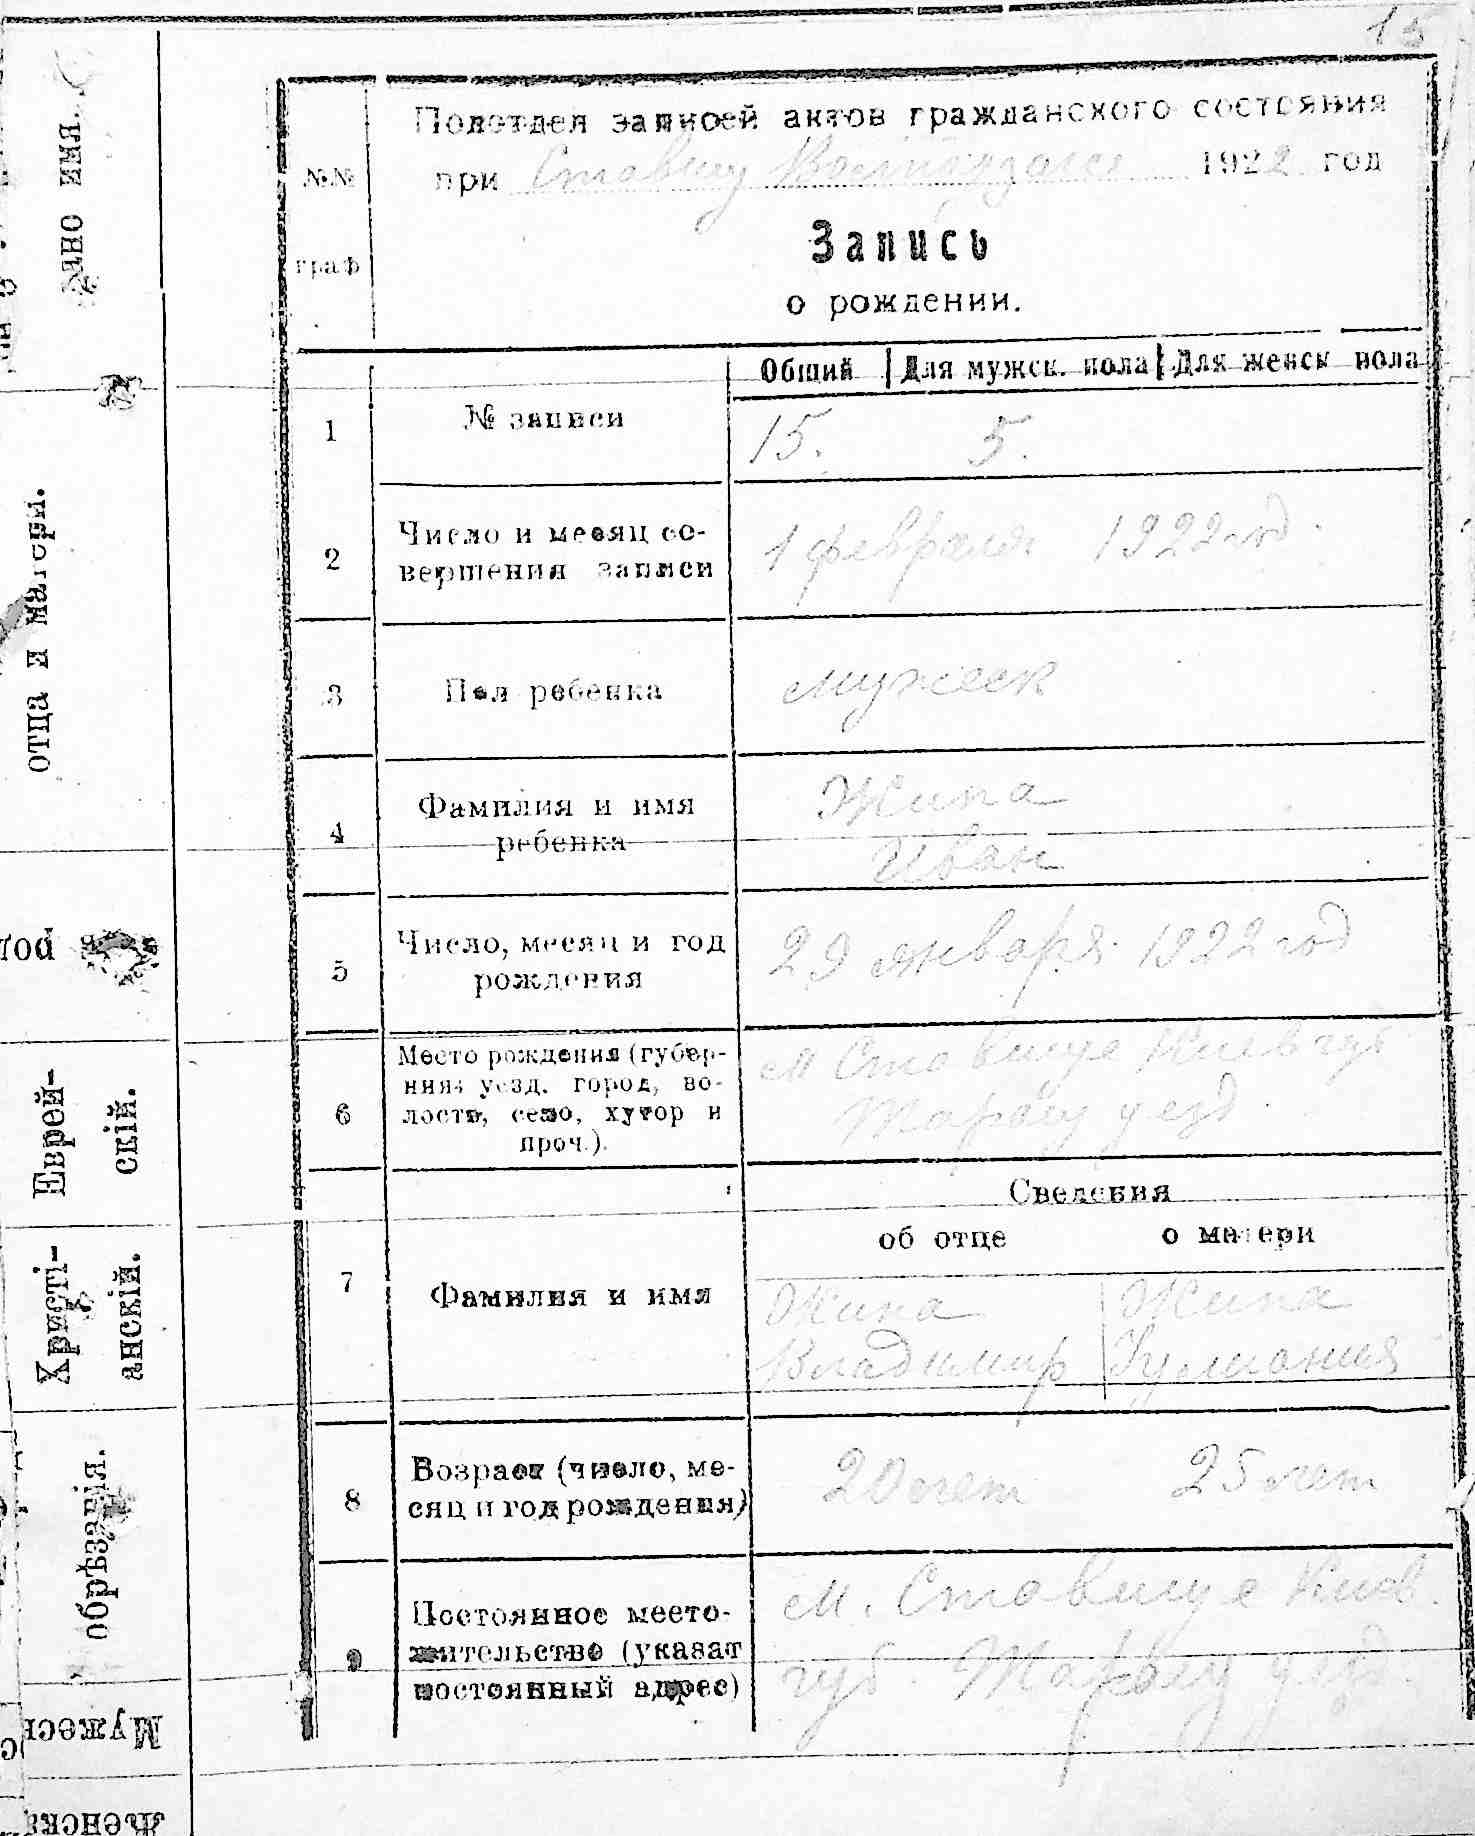 15
Подотдел записей актов гражданского состояния
при Ставищ 1922 год
№№ граф
Запись
о рождении.
Общий Для мужск. пола Для женск пола
1 № записи 15. 5.
2 Число и месяц со-
вершения записи 1 февраля 1922 год.
3 Пол ребенка мужеск
4 Фамилия и имя
ребенка
Жила
Иван
5 Число, месяц и год
рождения 29 января 1922 год
6 Место рождения (губер-
ния, уезд. город, во-
лость, село, хутор и
проч.).
м Ставище Киев губ
уезд.
Сведения
об отце о матери
7 Фамилия и имя
Владимир
8 Возраст (число, ме-
сяц и год рождения) 20 лет 25 лет
9 Постоянное место-
жительство (указат
постоянный адрес)
м. Ставище Киев.
губ. уезд.
ано имя.
отца и матери.
Еврей-
скій.
Христі-
анскій.
обрѣзанія.
Мужеск
Женска